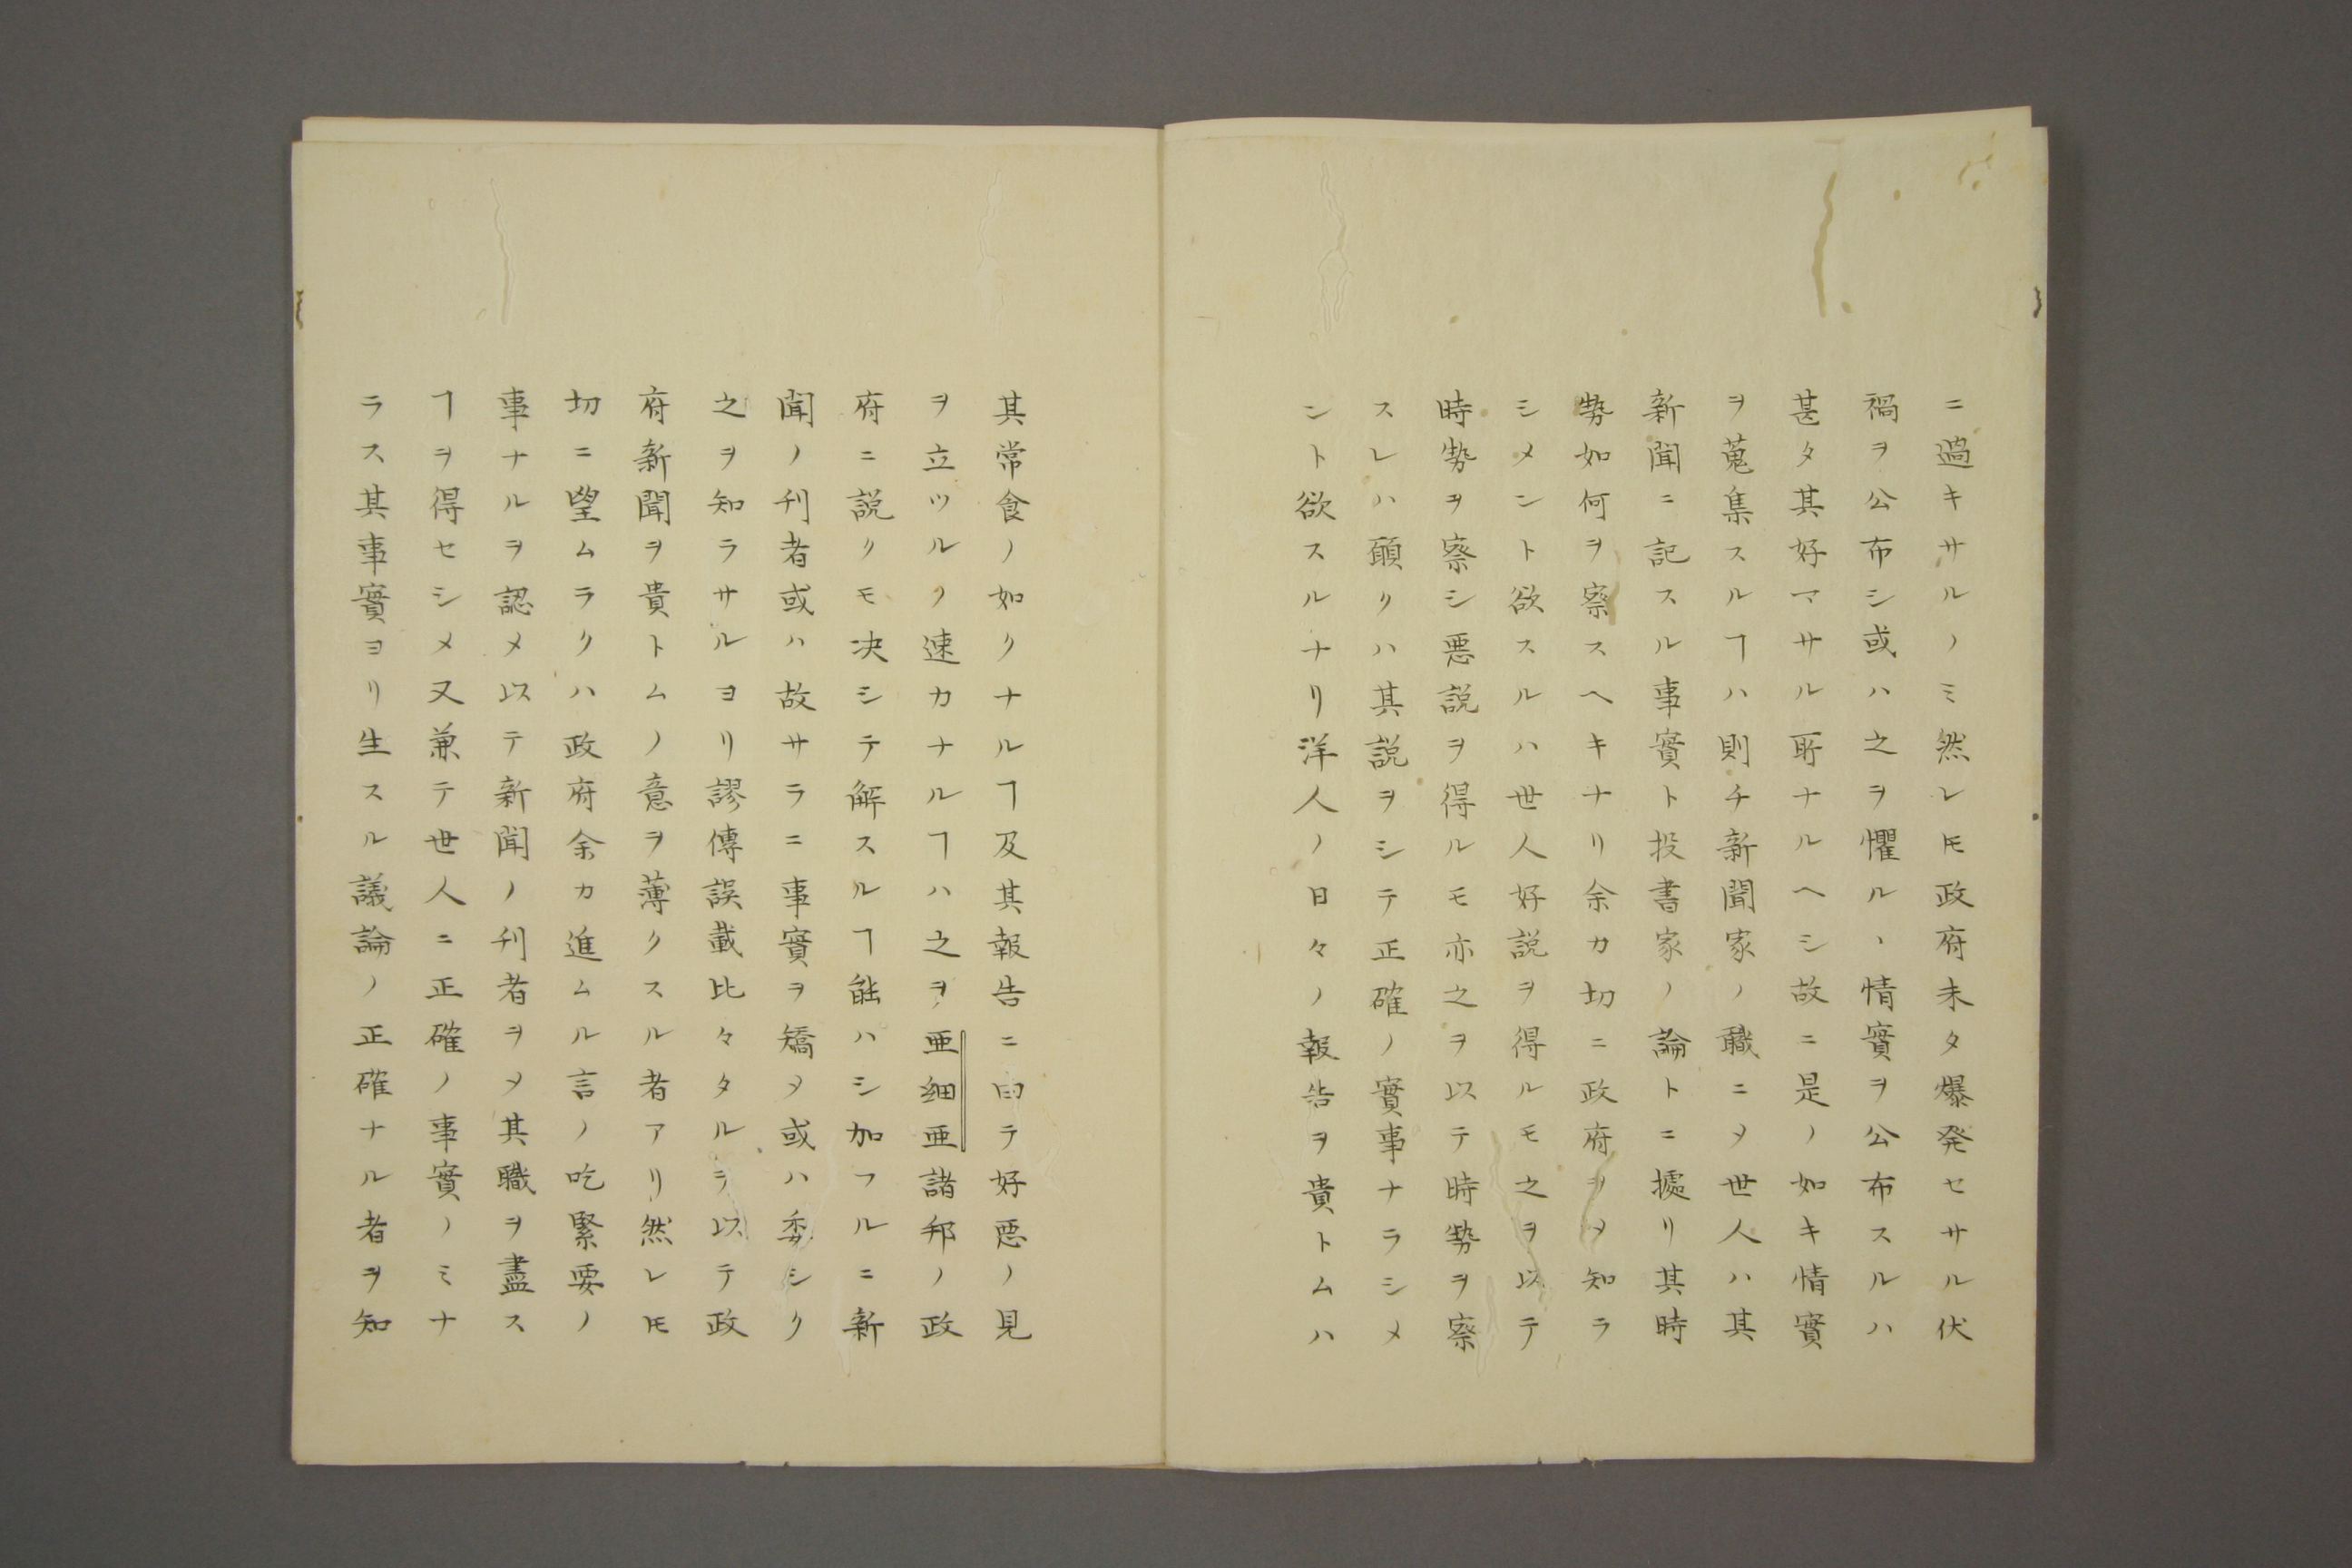 ニ過キサルノミ然レ𪜈政府未タ爆発セサル伏
禍ヲ公布シ或ハ之ヲ懼ルヽ情實ヲ公布スルハ
甚タ其好マサル所ナルヘシ故ニ是ノ如キ情實
ヲ蒐集スルヿハ則チ新聞家ノ職ニ〆世人ハ其
新聞ニ記スル事實ト投書家ノ論トニ據リ其時
勢如何ヲ察スヘキナリ余カ切ニ政府ヲ〆知ラ
シメント欲スルハ世人好説ヲ得ルモ之ヲ以テ
時勢ヲ察シ悪説ヲ得ルモ亦之ヲ以テ時勢ヲ察
スレハ願クハ其説ヲシテ正確ノ實事ナラシメ
ント欲スルナリ洋人ノ日々ノ報告ヲ貴トムハ
其常食ノ如クナルヿ及其報告ニ因テ好悪ノ見
ヲ立ツルノ速カナルヿハ之ヲ亜細亜諸邦ノ政
府ニ説クモ决シテ解スルヿ能ハシ加フルニ新
聞ノ刊者或ハ故サラニ事實ヲ矯〆或ハ委シク
之ヲ知ラサルヨリ謬傳誤載比々タルヲ以テ政
府新聞ヲ貴トムノ意ヲ薄クスル者アリ然レ𪜈
切ニ望ムラクハ政府余カ進ムル言ノ吃緊要ノ
事ナルヲ認メ以テ新聞ノ刊者ヲ〆其職ヲ盡ス
ヿヲ得セシメ又兼テ世人ニ正確ノ事實ノミナ
ラス其事實ヨリ生スル議論ノ正確ナル者ヲ知